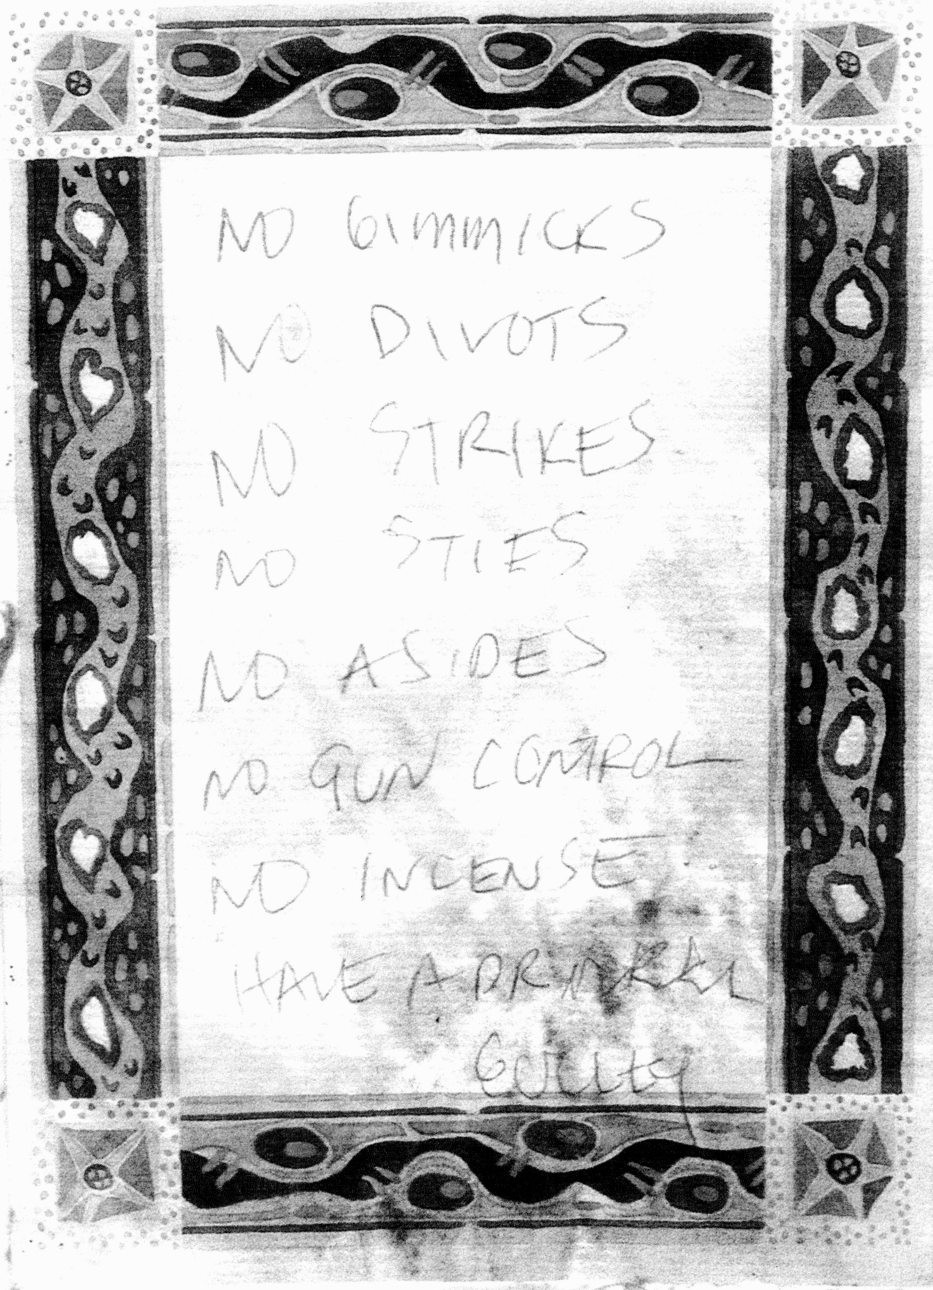 NO GIMMICKS
NO DIVOTS
NO STRIKES
NO STIES
NO ASIDES
NO GUN CONTROL
NO INCENSE
HAVE A
GULLEY